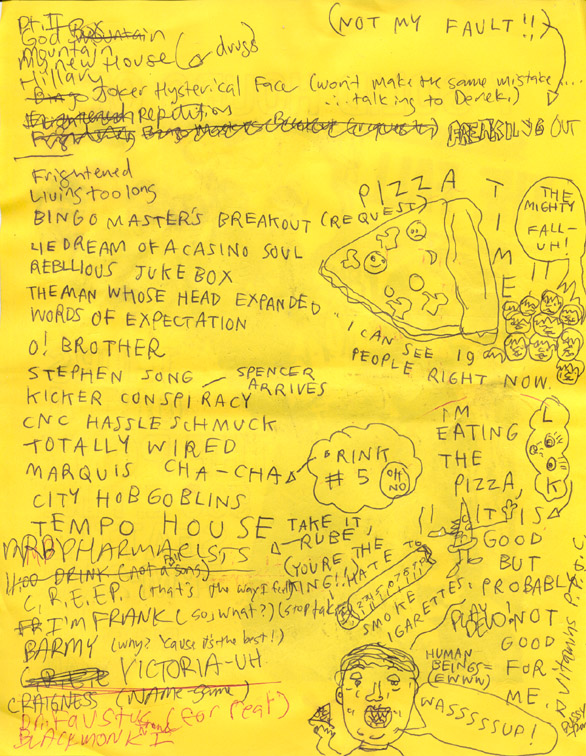 Pt. II
God Box
Mountain
My new House (or drugs)
Hillary
(NOT MY FAULT!!)
Joker Hysterical Face (won't make the same mistake...
...talking to Derek,)
Repetition
FREAKING OUT
Frightened
Living too long
BINGO MASTER'S BREAKOUT (REQUEST)
LIE DREAM OF A CASINO SOUL
REBLLIOUS JUKEBOX
THE MAN WHOSE HEAD EXPANDED
WORDS OF EXPECTATION
O! BROTHER
STEPHEN SONG – SPENCER
ARRIVES
KICKER CONSPIRACY
CNC HASSLE SCHMUCK
TOTALLY WIRED
MARQUIS CHA-CHA
DRINK
# 5
OH
NO
CITY HOBGOBLINS
TEMPO HOUSE
TAKE IT,
RUBE,
(YOU'RE THE
KING!!
MR. PHARMACISTS
11:00 DRINK (not a song)
C.R.E.E.P. (that's the way I feel)
I'M FRANK (so, what?) (stop talk
BARMY (why? 'cause it's the best!)
VICTORIA-UH
CRAIGNESS (NAME-game)
DR. FAUSTUS (for Peat)
BLACKMONK I
PIZZA
TIME
THE
MIGHTY
FALL-
UH!
IT
I CAN SEE 19
PEOPLE RIGHT NOW.
I'M
EATING
THE
PIZZA,
IT'S
GOOD
BUT
PROBABLY
NOT
GOOD
FOR
ME.
LOOK
I HATE TO
SMOKE
CIGARETTES.
PLAY
DEVO!
HUMAN
BEINGS=
(EWWW)
WASSSSSUP!